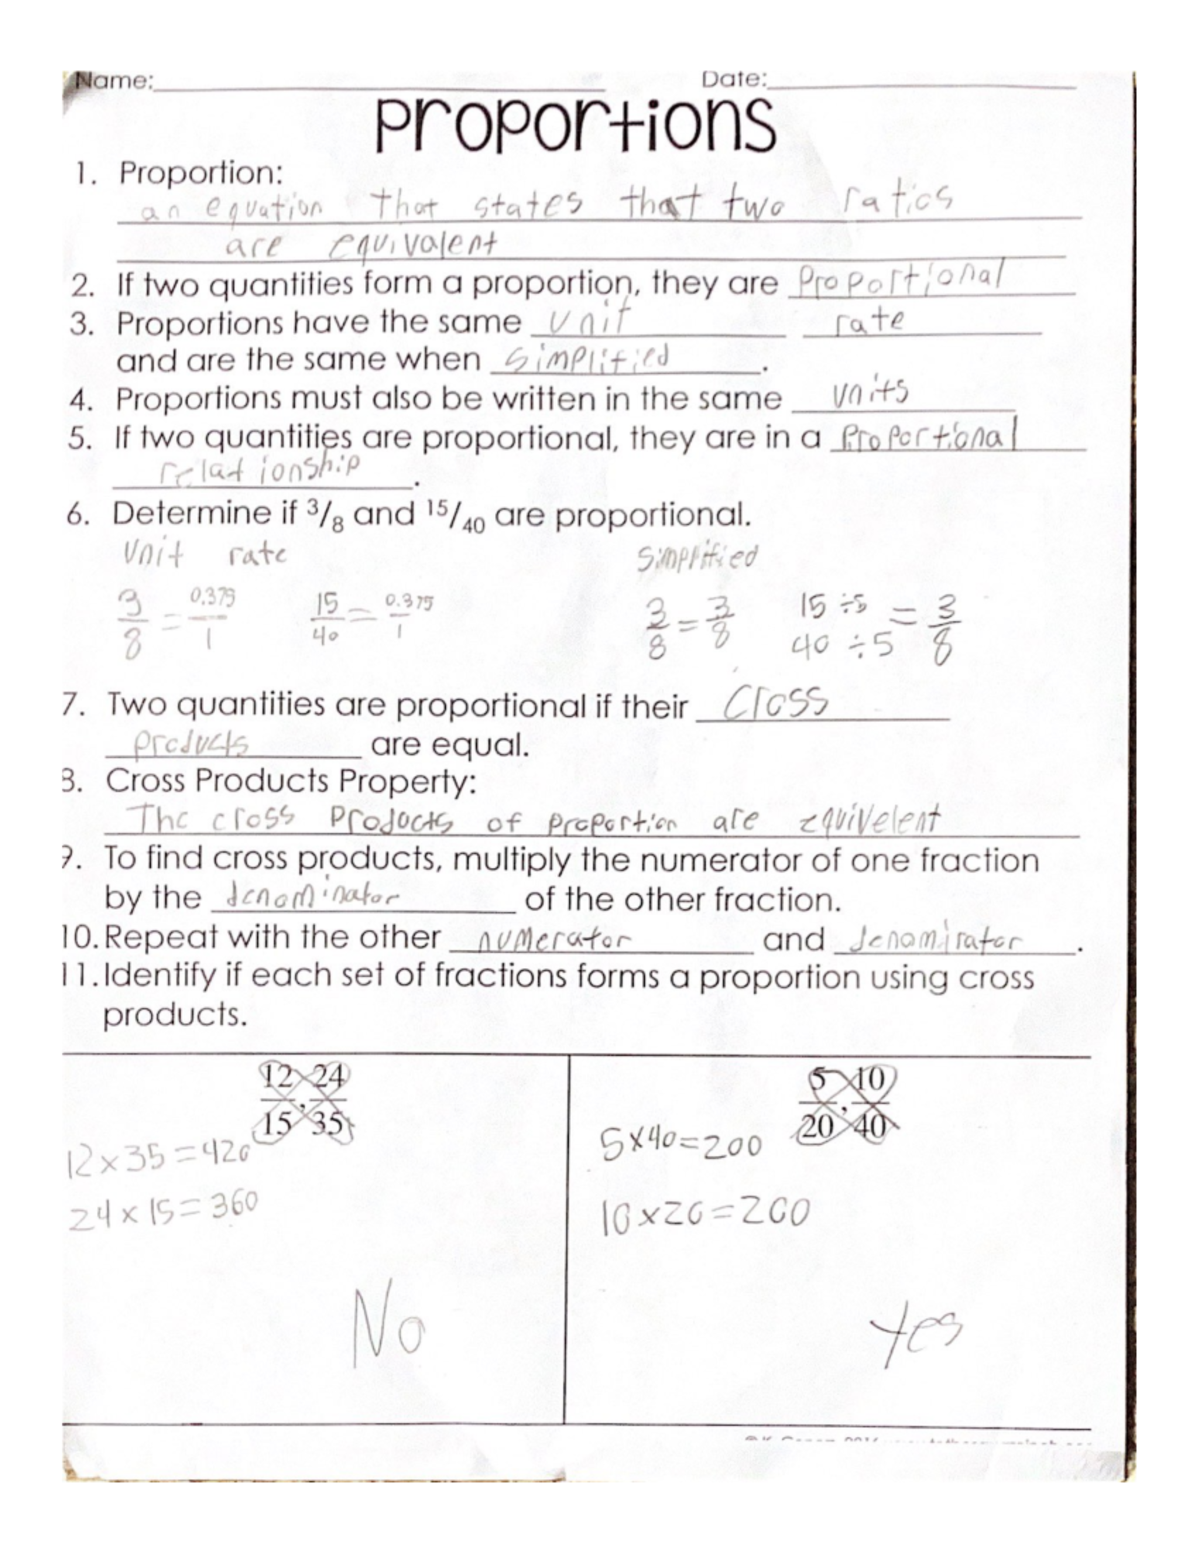 Name: Date:
Proportions
1. Proportion:
an equation that states that two ratios
are equivalent
2. If two quantities form a proportion, they are Proportional
3. Proportions have the same unit rate
and are the same when simplified.
4. Proportions must also be written in the same units
5. If two quantities are proportional, they are in a Proportional
relationship.
6. Determine if 3/8 and 15/40 are proportional.
unit rate simplified
3/8 = 0.375/1 15/40 = 0.375/1 3/8 = 3/8 15 ÷5 / 40 ÷5 = 3/8
7. Two quantities are proportional if their Cross
products are equal.
8. Cross Products Property:
The cross Products of proportion are equivelent
9. To find cross products, multiply the numerator of one fraction
by the denominator of the other fraction.
10. Repeat with the other numerator and denominator.
11. Identify if each set of fractions forms a proportion using cross
products.
12/15, 24/35 5/20, 10/40
12x35=420 5x40=200
24x15=360 10x20=200
No Yes